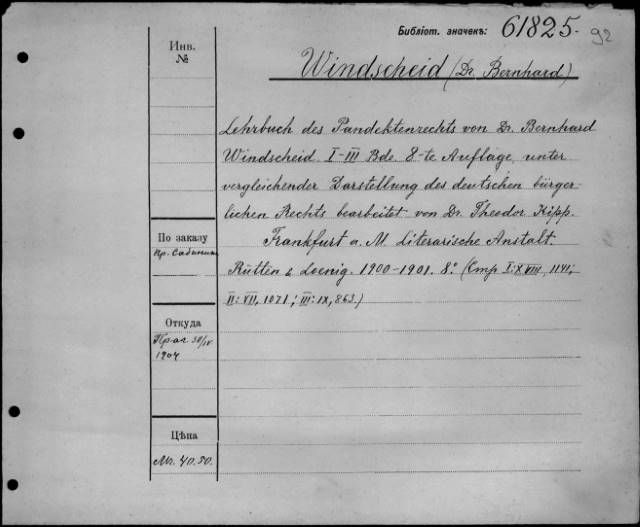 Библіот. значекъ: 61825. 92
Windscheid (Dr. Bernhard)
Инв.
№
Lehrbuch des Pandektenrechts von Dr. Bernhard
Windscheid. I-III Bde. 8-te Auflage, unter
vergleichender Darstellung des deutschen bürger-
lichen Rechts bearbeitet von Dr. Theodor Kipp.
Frankfurt a. M. Literarische Anstalt.
Rütten & Loenig. 1900-1901. 8.° (Стр I: XVIII, 1141;
II: VII, 1071; III: IX, 863.)
По заказу
Пр. Сабинина
Откуда
1904
Цѣна
Mr. 40.50.